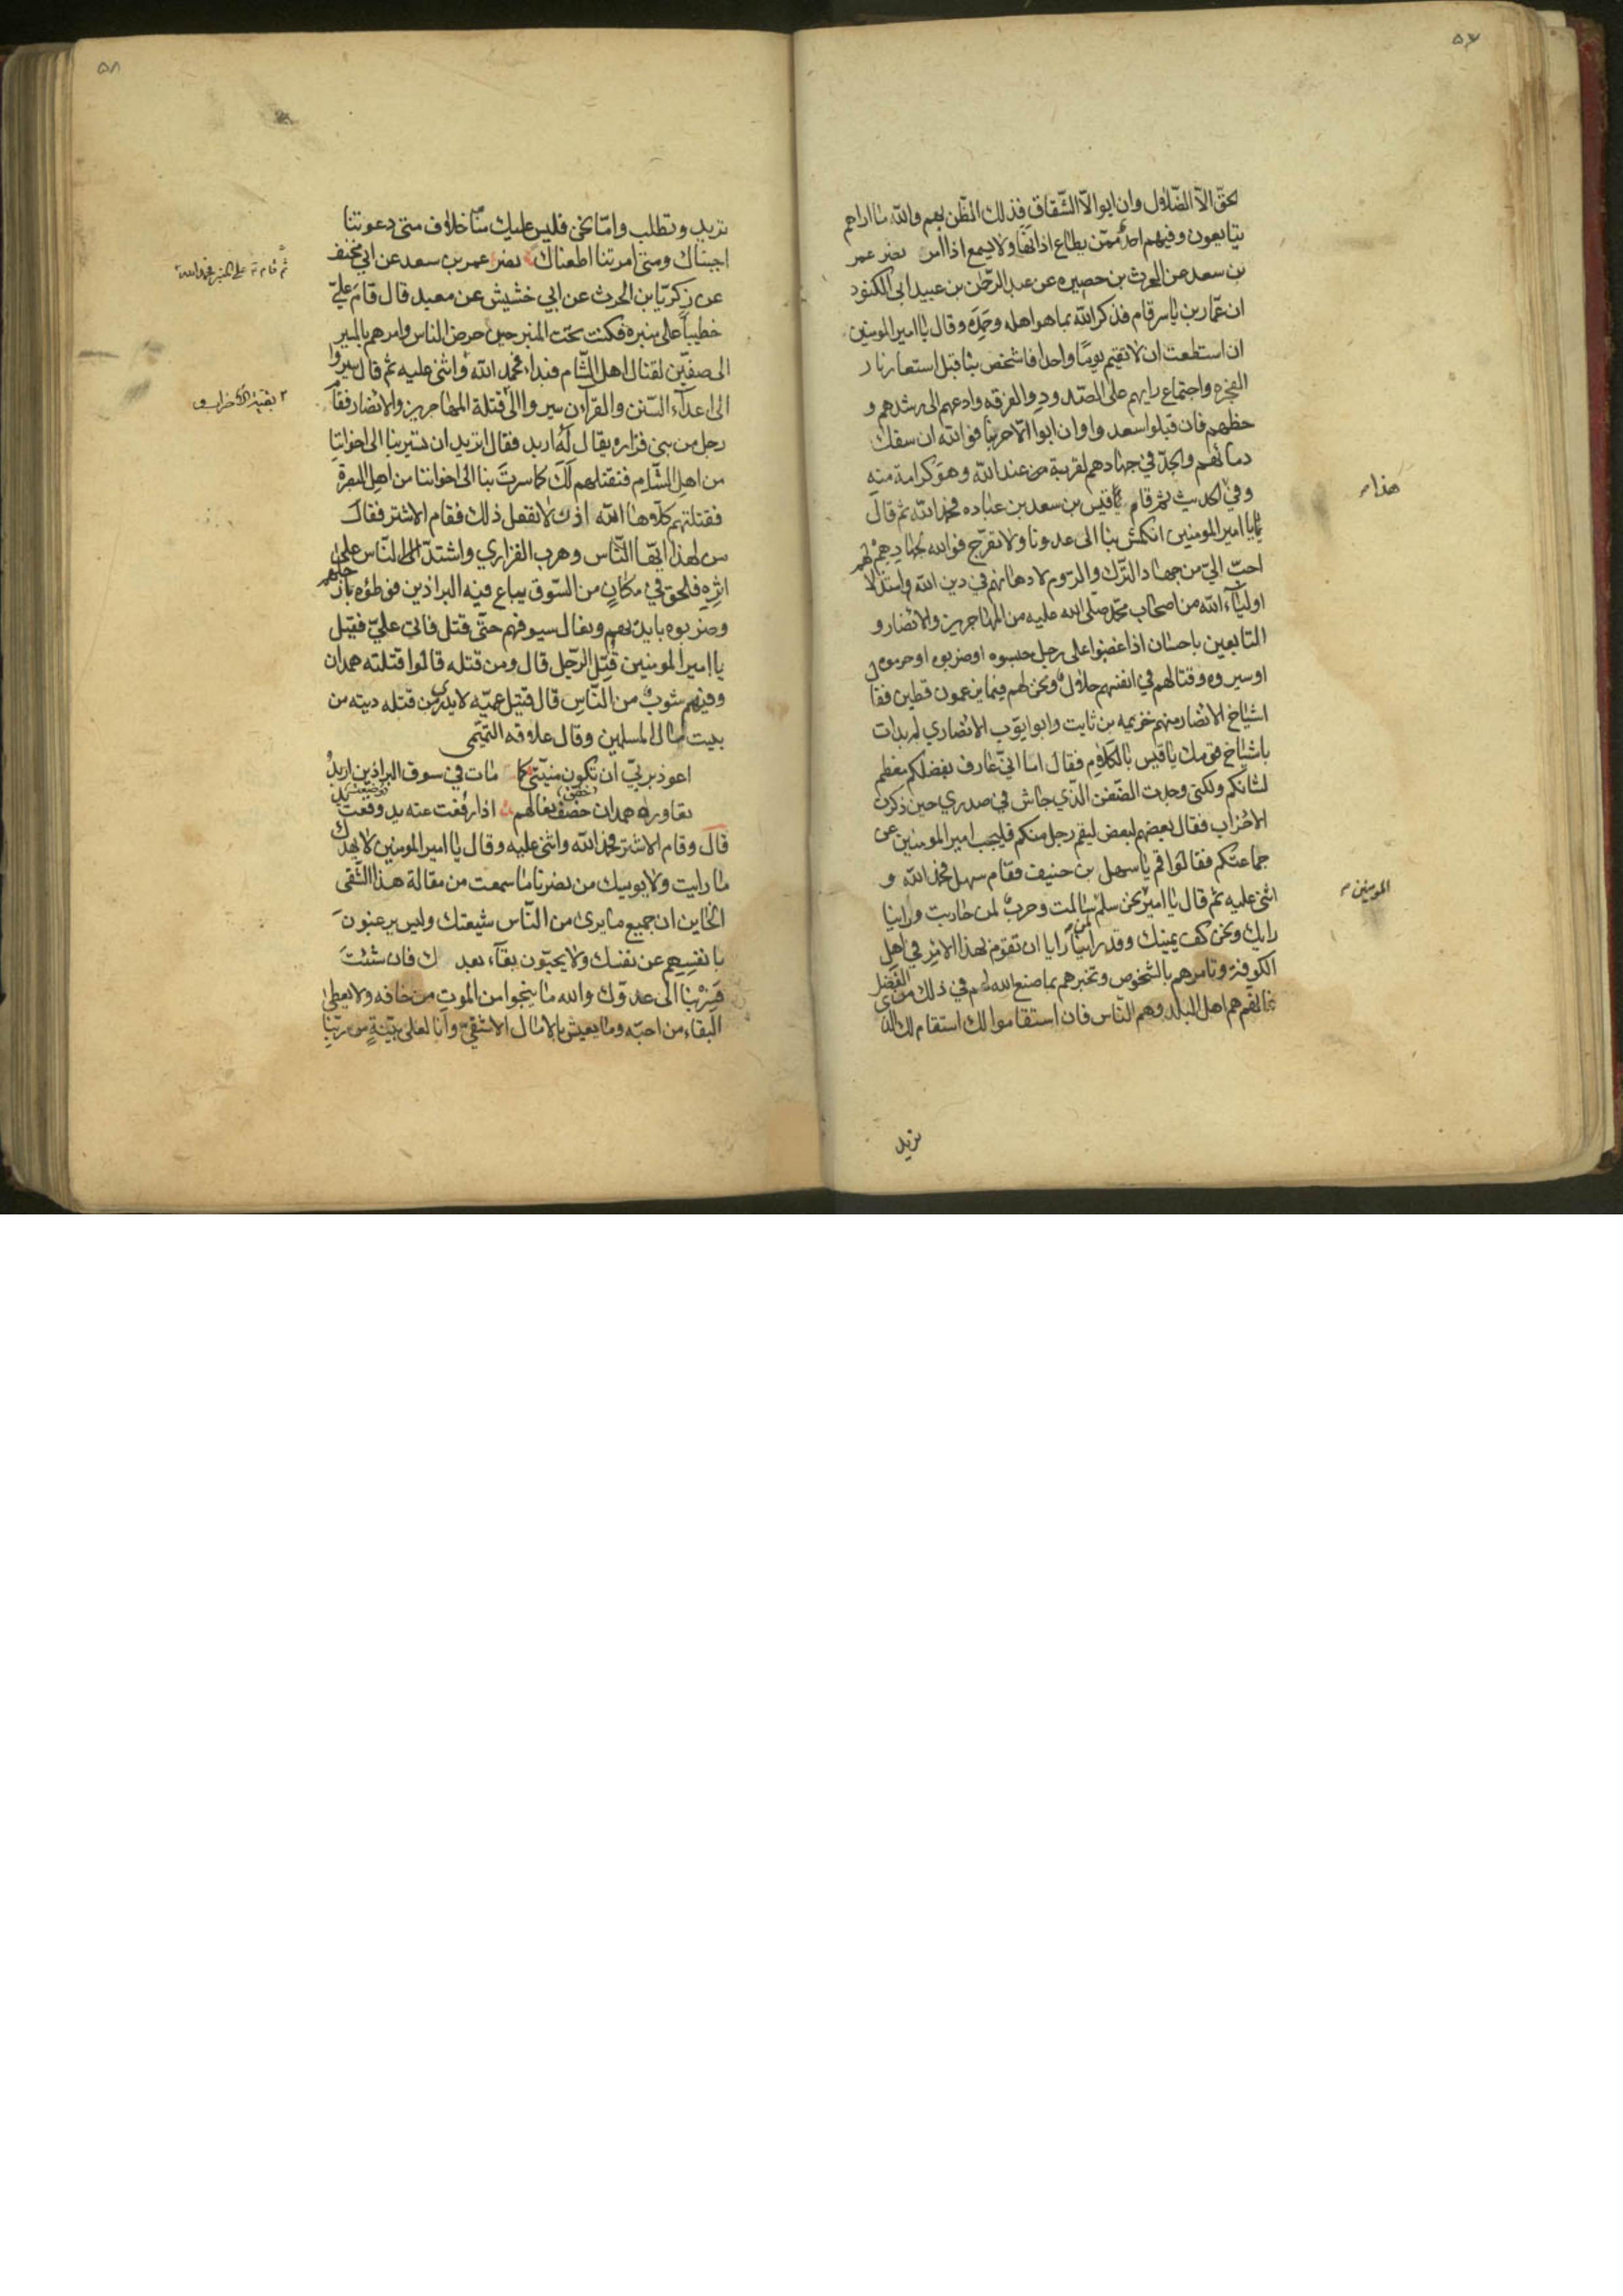 ٥٧
لحقّ الا الضّلال وان ابوا الّا الشّقاق فذلك الظّن بهم والله ما اراهم
يتبايعون وفيهم احد ممّن يطاع اذا نها ولا يسمع اذا امر نصر عمر
بن سعد عن الحرث بن حصيره عن عبد الرّحمن بن عبيد ابى الكنود
ان عمّار بن ياسر قام فذكر الله بما هو اهله وحمده وقال يا امير المومنين
ان استطعت ان لا تقيم يومًا واحدا فاشخص بنا قبل استعار نار
الفجره واجتماع رايهم على الصّدود والفرقه وادعهم الى رشدهم و
حظهم فان قبلوا سعدوا وان ابوا الّا حربنا فوالله ان سفك
دمائهم والجدّ في جهادهم لقربة من عند الله وهو كرامة منه
وفي الحديث ثم قام قيس بن سعد بن عباده فحمد الله ثم قال
هذا
يا امير المومنين انكمش بنا الى عدونا ولا تعرّج فوالله لجهادهم
احبّ اليّ من جهاد الترك والرّوم لادهانهم في دين الله واستذلالهم
اولياء الله من اصحاب محمّد صلّى الله عليه من المهاجرين والانصار و
التابعين باحسان اذا غضبوا على رجل حبسوه او ضربوه او حرموه
او سيروه وقتالهم في انفسهم حلال ونحن لهم فيما يزعمون قطين فقال
اشياخ الانصار منهم خزيمه بن ثابت وابو ايّوب الانصاري لم بدات
باشياخ قومك يا قيس بالكلام فقال اما انّي عارف بفضلكم معظم
لشانكم ولكنى وجدت الضّغن الّذي جاش في صدري حين ذكرت
الاحزاب فقال بعضهم لبعض ليقم رجل منكم فليجب امير المومنين عن
جماعتكم فقالوا قم يا سهل بن حنيف فقام سهل فحمد الله و
اثنى عليه ثم قال يا امير نحن سلم لمن سالمت وحرب لمن حاربت وراينا
المومنين
رايك ونحن كف يمينك وقد راينا ان تقوم بهذا الامر في اهل
الكوفة وتامرهم بالشخوص وتخبرهم بما صنع الله لهم في ذلك من الفضل
فانهم هم اهل البلد وهم النّاس فان استقاموا لك استقام لك الذى
تريد
٥٨
تريد وتطلب وامّا نحن فليس عليك منّا خلاف متى دعوتنا
اجبناك ومتى امرتنا اطعناك نصر عمر بن سعد عن ابي مخنف
عن زكريّا بن الحرث عن ابي خشيش عن معبد قال قام عليّ
خطيبا على منبره فكنت تحت المنبر حين حرض الناس وامرهم بالمسير
الى صفيّن لقتال اهل الشّام فبدا فحمد الله واثنى عليه ثم قال سيروا
الى اعداء السّنن والقرآن سيروا الى قتلة المهاجرين والانصار فقام
بقية الاحزاب
رجل من بني فزاره يقال له اربد فقال اتريد ان تسير بنا الى اخواننا
من اهل الشّام فنقتلهم لك كما سرت بنا الى اخواننا من اهل البصرة
فقتلتهم كلّا ها الله اذن لا نفعل ذلك فقام الاشتر فقال
من لهذا ايّها النّاس وهرب الفزاري واشتدّ النّاس على
اثره فلحق في مكان من السّوق يباع فيه البراذين فوطؤه بارجلهم
وضربوه بايديهم ونعال سيوفهم حتّى قتل فاتى عليّ فقيل
يا امير المومنين قتل الرّجل قال ومن قتله قالوا قتلته همدان
وفيهم شوب من النّاس قال قتيل عميّه لا يدرى من قتله ديته من
بيت مال المسلمين وقال علاقه التّيمى
اعوذ بربّي ان تكون منيّتي كما مات في سوق البراذين اربد
تعاوره همدان خصف نعالهم اذا رفعت عنه يد وقعت يد
قال وقام الاشتر فحمد الله واثنى عليه وقال يا امير المومنين لا يهدنك
ما رايت ولا يويسك من نصرنا ما سمعت من مقالة هذا الشّقى
الخاين ان جميع ما يرى من النّاس شيعتك وليس يرغبون
بانفسهم عن نفسك ولا يحبّون بقاء بعدك فان شئت
فسر بنا الى عدوّك والله ما ينجوا من الموت من خافه ولا يعطى
البقاء من احبّه وما يعيش بالامال الا شقيّ وانا لعلى بيّنة من ربّنا